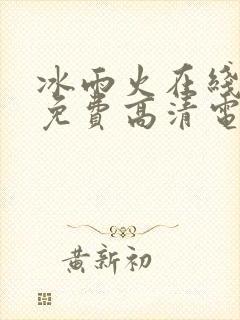 冰雨火在綫
免費高清電
黄新初